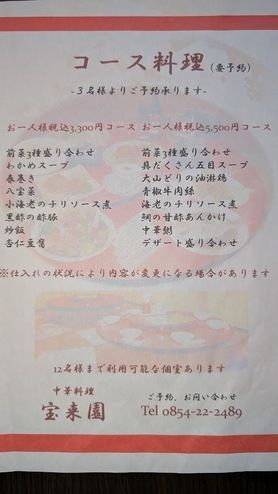 コース料理(要予約)
-3名様よりご予約承ります-
お一人様税込3,300円コース
前菜3種盛り合わせ
わかめスープ
春巻き
八宝菜
小海老のチリソース煮
黒酢の酢豚
炒飯
杏仁豆腐
お一人様税込5,500円コース
前菜3種盛り合わせ
具だくさん五目スープ
大山どりの油淋鶏
青椒牛肉絲
海老のチリソース煮
鯛の甘酢あんかけ
中華粥
デザート盛り合わせ
※仕入れの状況により内容が変更になる場合があります
12名様まで利用可能な個室あります
中華料理
宝来園
ご予約、お問い合わせ
Tel 0854-22-2489